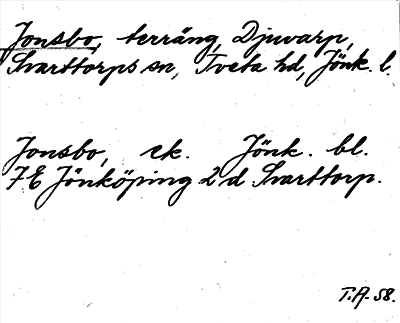 Jonsbo, terräng, Djuvarp,
Svarttorps sn, Tveta hd, Jönk. l.
Jonsbo, ek. Jönk. bl.
7E Jönköping 2d Svarttorp.
T.A. 58.